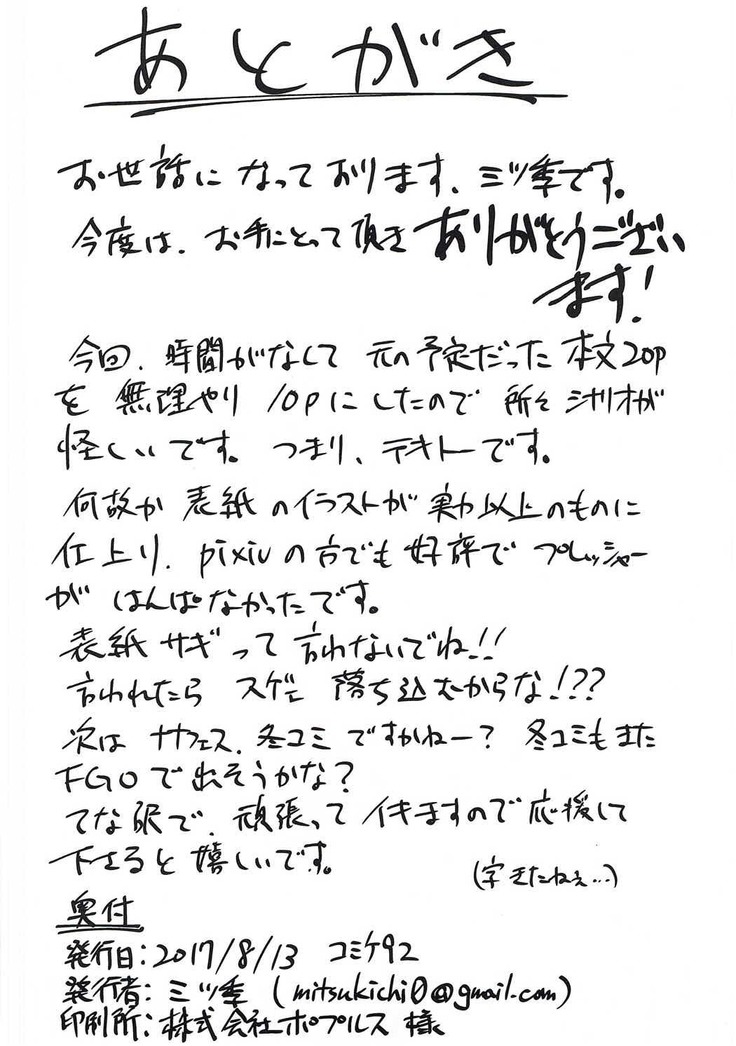 あとがき
お世話になっております、三ツ季です。
今度は、お手にとって頂きありがとうござい
ます!
今回、時間がなくて 元の予定だった 本文20P
を 無理やり 10Pにしたので 所々シナリオが
怪しいです。 つまり、テキトーです。
何故か 表紙のイラストが 実力以上のものに
仕上り、pixivの方でも 好評で プレッシャー
が はんぱなかったです。
表紙サギって 言わないでね!!
言われたら スゲェ 落ち込むからな!??
次は サンフェス、冬コミ ですかねー? 冬コミもまた
FGOで出そうかな?
てな訳で、頑張ってイキますので応援して
下さると嬉しいです。
(字きたねぇ…)
奥付
発行日:2017/8/13 コミケ92
発行者:三ツ季 (mitsukichi0@gmail.com)
印刷所:株式会社ポプルス 様